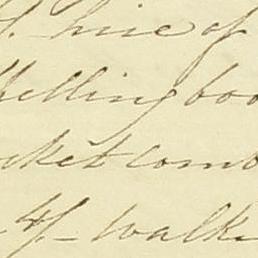 hire of
Spelling boo
ocket comb
4/- walk